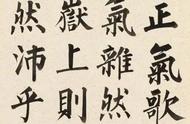 正氣歌
氣雜然
嶽上則
然沛乎